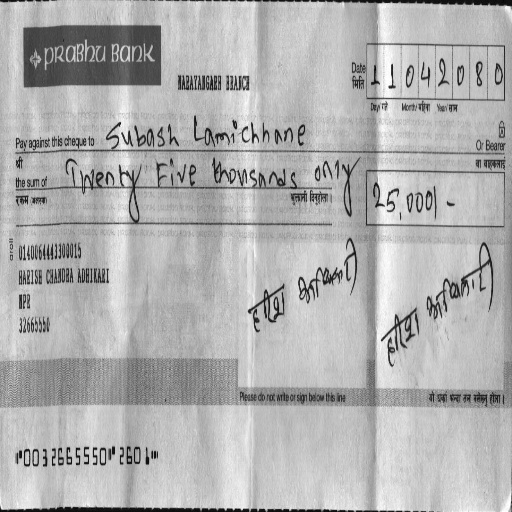 PRABHU BANK
NARAYANGARH BRANCH
Date
मिति
11042080
Day/ गते Month/ महिना Year/ साल
Pay against this cheque to Subash Lamichhane
Or Bearer
श्री
वा वाहकलाई
the sum of Twenty Five thousands only
रकम (अक्षरमा)
भुक्तानी दिनुहोला ।
25,000/-
0140064443300015
HARISH CHANDRA ADHIKARI
NPR
32665550
हरिश अधिकारी
हरिश अधिकारी
Please do not write or sign below this line
यो रेखा भन्दा तल नलेख्नु होला ।
⑈0032665550⑈2601⑈